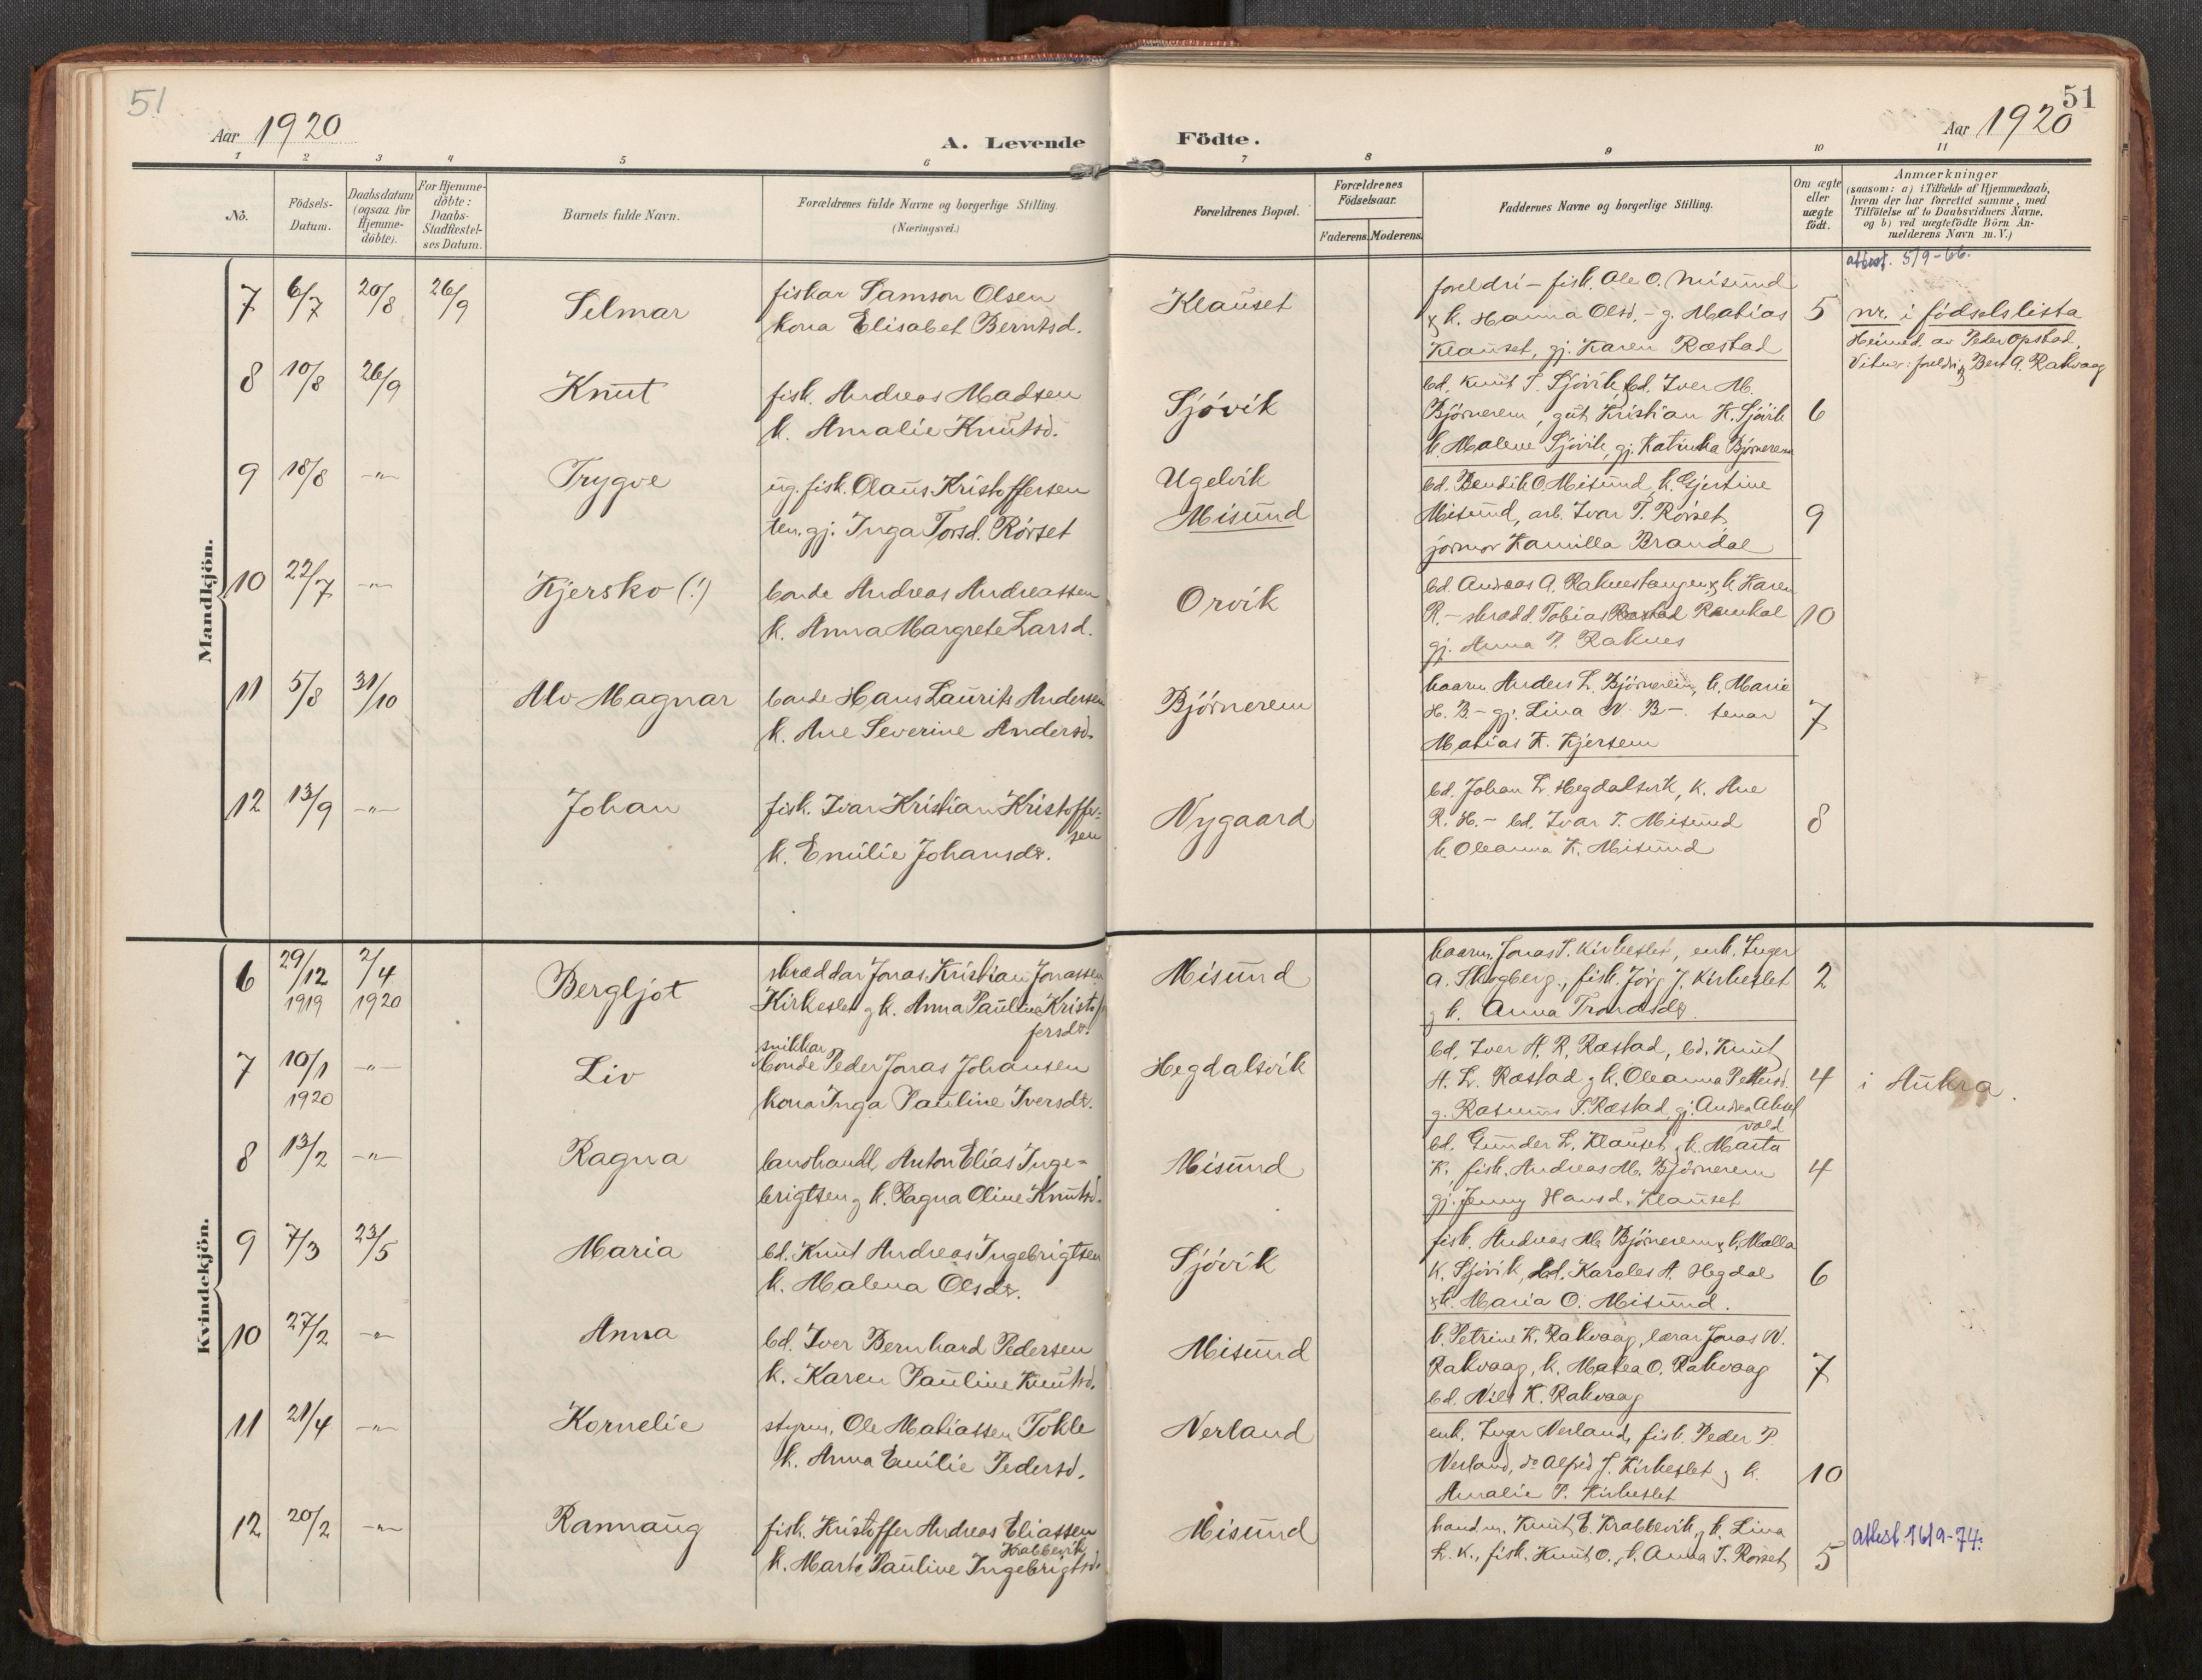 51
51
Aar 1920
A. Levende Födte.
Aar 1920
1 2 3 4 5 6 7 8 9 10 11
No.
Födsels-Datum.
Daabsdatum (ogsaa for Hjemme-döbte).
For Hjemme-döbte: Daabs-Stadfæstel-ses Datum.
Barnets fulde Navn.
Forældrenes fulde Navne og borgerlige Stilling.
(Næringsvei.)
Forældrenes Bopæl.
Forældrenes Födselsaar.
Faderens. Moderens.
Faddernes Navne og borgerlige Stilling.
Om ægte eller uægte födt.
Anmærkninger
(saasom: a) i Tilfælde af Hjemmedaab,
hvem der har forrettet samme, med
Tilföielse af to Daabsvidners Navne,
og b) ved uægtefödte Börn An-
melderens Navn m. V.)
Mandkjön.
attest. 5/9-66.
7 6/7 20/8 26/9 Selmar
fiskar Samson Olsen
kona Elisabet Berntsd.
Klauset
foreldri - fisk. Ole O. Misund
& k. Hanna Olsd. - g. Matias
Klauset, gj. Karen Ræstad
5
nr. i fødselslista
Heimed. av Peder Opstad,
Vitner: foreldri & Bert A. Rakvaag
8 10/8 26/9 Knut
fisk. Andreas Madsen
k. Amalie Knutsd.
Sjøvik
bd. Knut S. Sjøvik, bd. Iver M.
Bjørnerem, gut Kristian K. Sjøvik
k. Malene Sjøvik, gj. Katinka Bjørnerem
6
9 18/8 -"- Trygve
ug. fisk. Olaus Kristoffersen
ten. gj. Inga Torsd. Rørset
Ugelvik
Misund
bd. Bendik O. Misund, k. Gjertine
Misund, arb. Ivar T. Rørset,
jormor Kamilla Brandal
9
10 22/7 -"- Kjersko (!)
bonde Andreas Andreassen
k. Anna Margrete Larsd.
Orvik
bd. Andreas A. Raknestangen & k. Karen
R. - skrædd. Tobias Ræstad
gj. Anna P. Raknes
10
11 5/8 31/10 Alv Magnar
bonde Hans Laurits Andersen
k. Ane Severine Andersd.
Bjørnerem
kaarm. Anders L. Bjørnerem, k. Marie
H. B - gj. Lina N. B -. tenar
Matias K. Kjersem
7
12 13/9 -"- Johan
fisk. Ivar Kristian Kristoffer-
sen
k. Emilie Johansdr.
Nygaard
bd. Johan L. Hegdalsvik, k. Ane
R. H. - bd. Ivar T. Misund
k. Oleanna K. Misund
8
Kvindekjön.
6 29/12 1919 2/4 1920 Bergljot
skræddar Jonas Kristian Jonassen
Kirkeslet g k. Anna Pauline Kristof
fersdr.
Misund
kaarm. Jonas T. Kirkeslet, enk. Inger
A. Skogberg., fisk. Jørg J. Kirkeslet
g k. Anna Trondsdr.
2
7 10/1 1920 -"- Liv
snikkar
bonde Peder Jonas Johansen
kona Inga Pauline Iversdr.
Hegdalsvik
bd. Iver H. R. Ræstad, bd. Knut
H. L. Ræstad g k. Oleanna Pettersd.
g. Rasmus S. Ræstad gj. Andrea Aksel
vold
4
i Aukra.
8 13/2 -"- Ragna
landhandl. Anton Elias Inge-
brigtsen g k. Ragna Oline Knutsd.
Misund
bd. Gunder L. Klauset g k. Marta
K, fisk. Andreas M. Bjørnerem
gj. Jenny Hansd. Klauset
4
9 7/3 23/5 Maria
bd. Knut Andreas Ingebrigtsen
k. Malena Olsdr.
Sjøvik
fisk. Andreas M. Bjørnerem & k. Malla
K. Sjøvik, bd. Karoles A. Hegdal
& k. Maria O. Misund.
6
10 27/2 -"- Anna
bd. Iver Bernhard Pedersen
k. Karen Pauline Knutsd.
Misund
k. Petrine K. Rakvaag, lærar Jonas N.
Rakvaag, k. Matea O. Rakvaag
bd. Nils K. Rakvaag
7
11 21/4 -"- Kornelie
styrm. Ole Matiassen Tokle
k. Anna Emilie Pedersd.
Nerland
enk. Inger Nerland, fisk. Peder P.
Nerland, do Alfred J. Kirkeslet g k.
Amalie P. Kirkeslet
10
12 20/2 -"- Rannaug
fisk. Kristoffer Andreas Eliassen
Krabbevik
k. Marta Pauline Ingebrigtsd.
Misund
handm. Knut E. Krabbevik, g k. Lina
L. K., fisk. Knut O., k. Anna T. Rørset,
5
attest. 16/9-74.